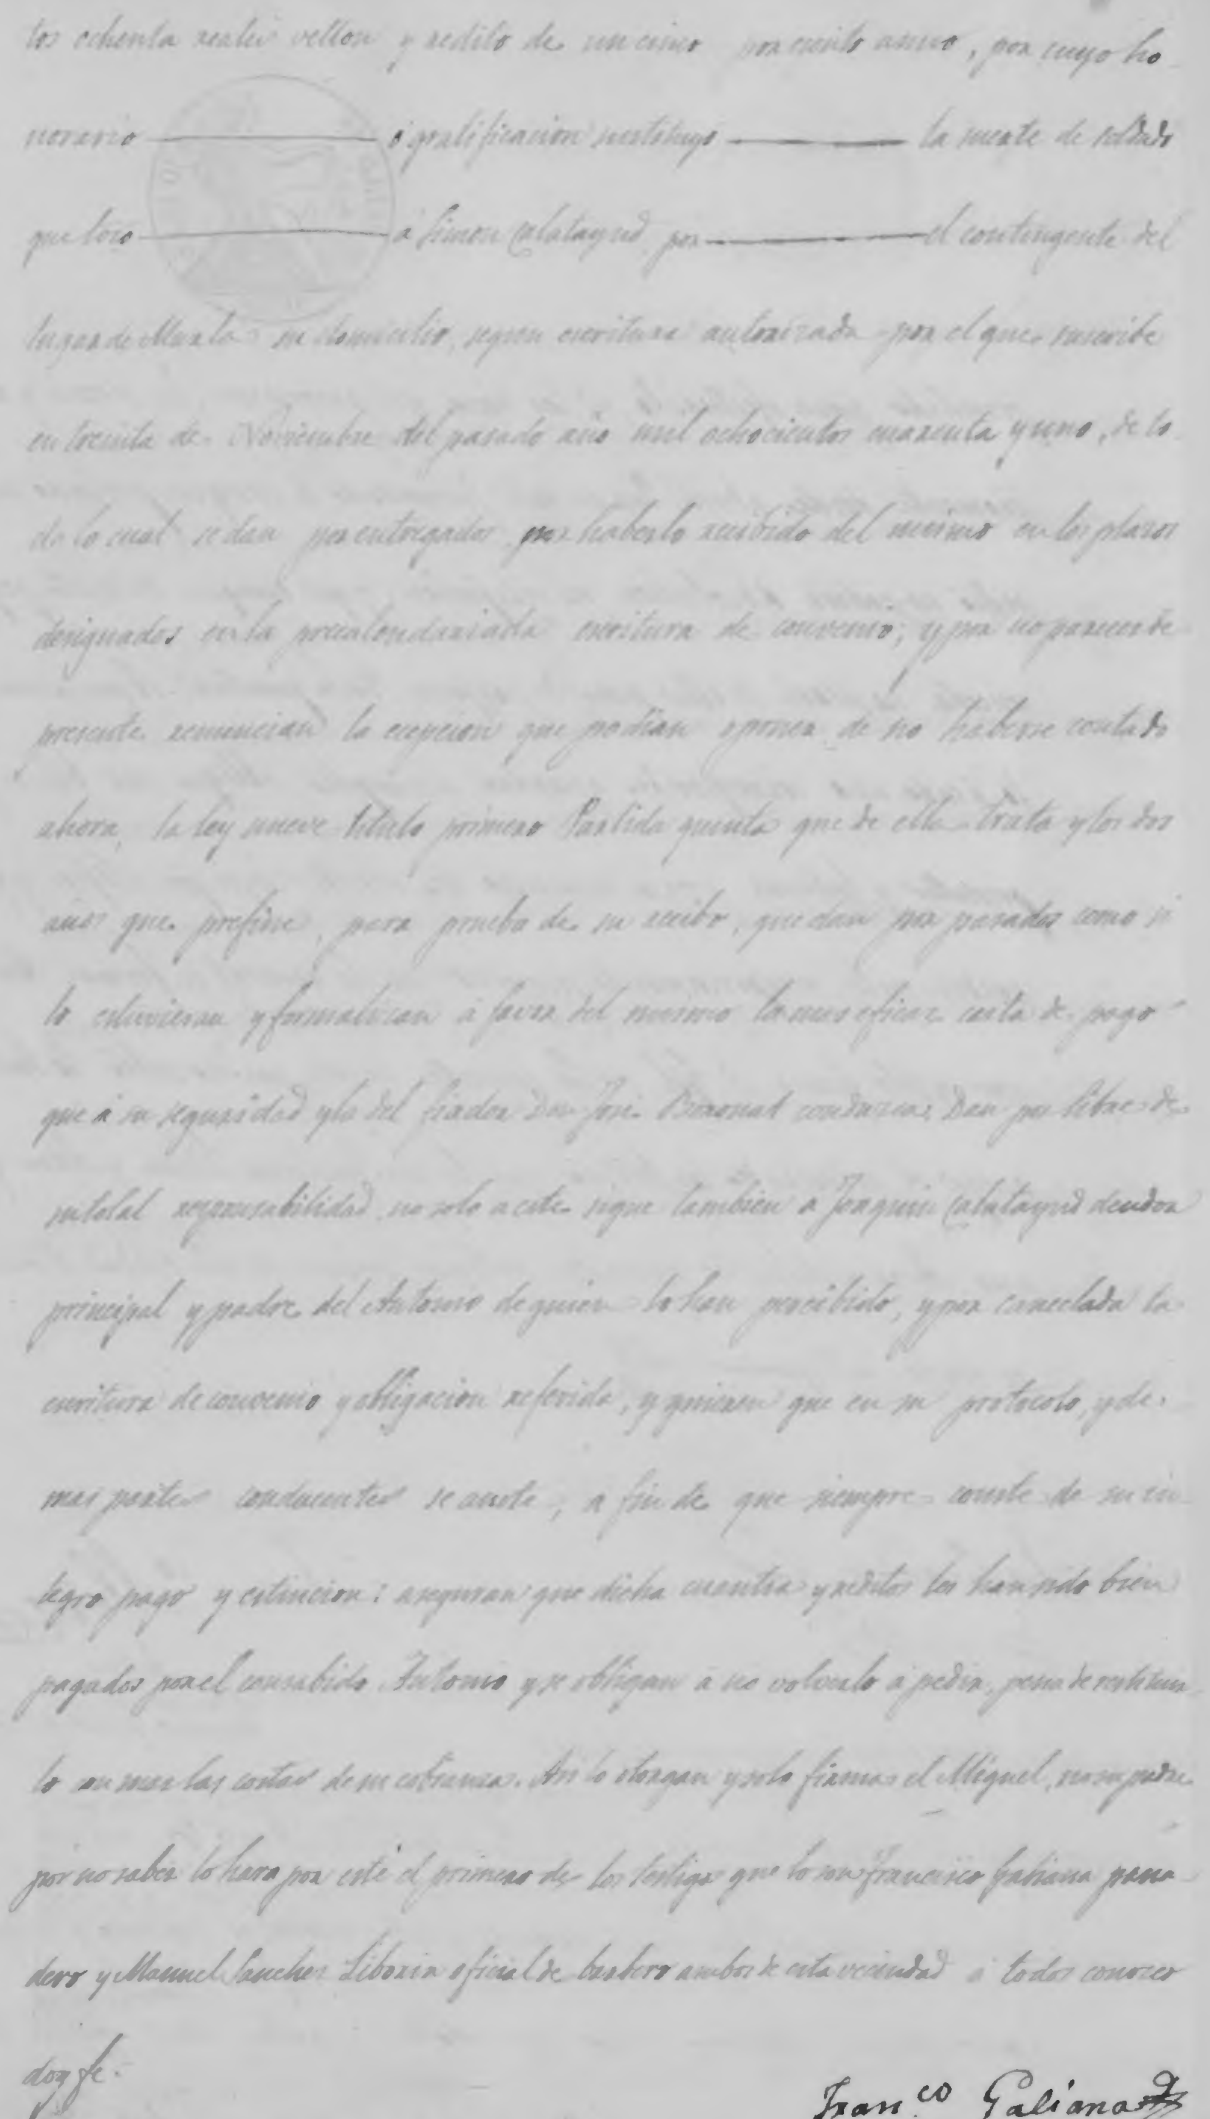 tos ochenta reales vellon y redito de un cinco por ciento anuo, por cuyo ho
norario ó gratificacion sustituyó la suerte de soldado
que toco á Simon Calatayud por el contingente del
lugar de Murla su domicilio, segun escritura autorizada por el que suscribe
en treinta de Noviembre del pasado año mil ochocientos cuarenta y uno, de to
do lo cual se dan por entregados por haberlo recibido del mismo en los plazos
designados en la precalendariada escritura de convenio; y por no parecer de
presente renuncian la ecepcion que podian oponer de no haberse contado
ahora, la ley nueve titulo primero Partida quinta que de ella trata y los dos
años que prefine, para prueba de su recibo, que dan por pasados como si
lo estuvieran y formalizan á favor del mismo la mas eficaz carta de pago
que á su seguridad y la del fiador Don José Boronat conduzca; Dan por libre de
su total responsabilidad no solo a este sique tambien a Joaquin Calatayud deudor
principal y padre del Antonio de quien lo han percibido, y por cancelada la
escritura de convenio y obligacion referida, y quieren que en su protocolo, y de
mas partes conducentes se anote, a fin de que siempre conste de su in
tegro pago y estincion: aseguran que dicha cuantia y reditos les han sido bien
pagados por el consabido Antonio y se obligan á no volverlo á pedir, pena de restituir
lo con mas las costas de su cobranza. Asi lo otorgan y solo firma el Miguel, no su padre
por no saber lo hara por este el primero de los testigos que lo son Francisco Galiana pana
dero y Manuel Sanchez Liboria oficial de barbero ambos de esta vecindad á todos conozco
doy fe.
Fran.co Galiana